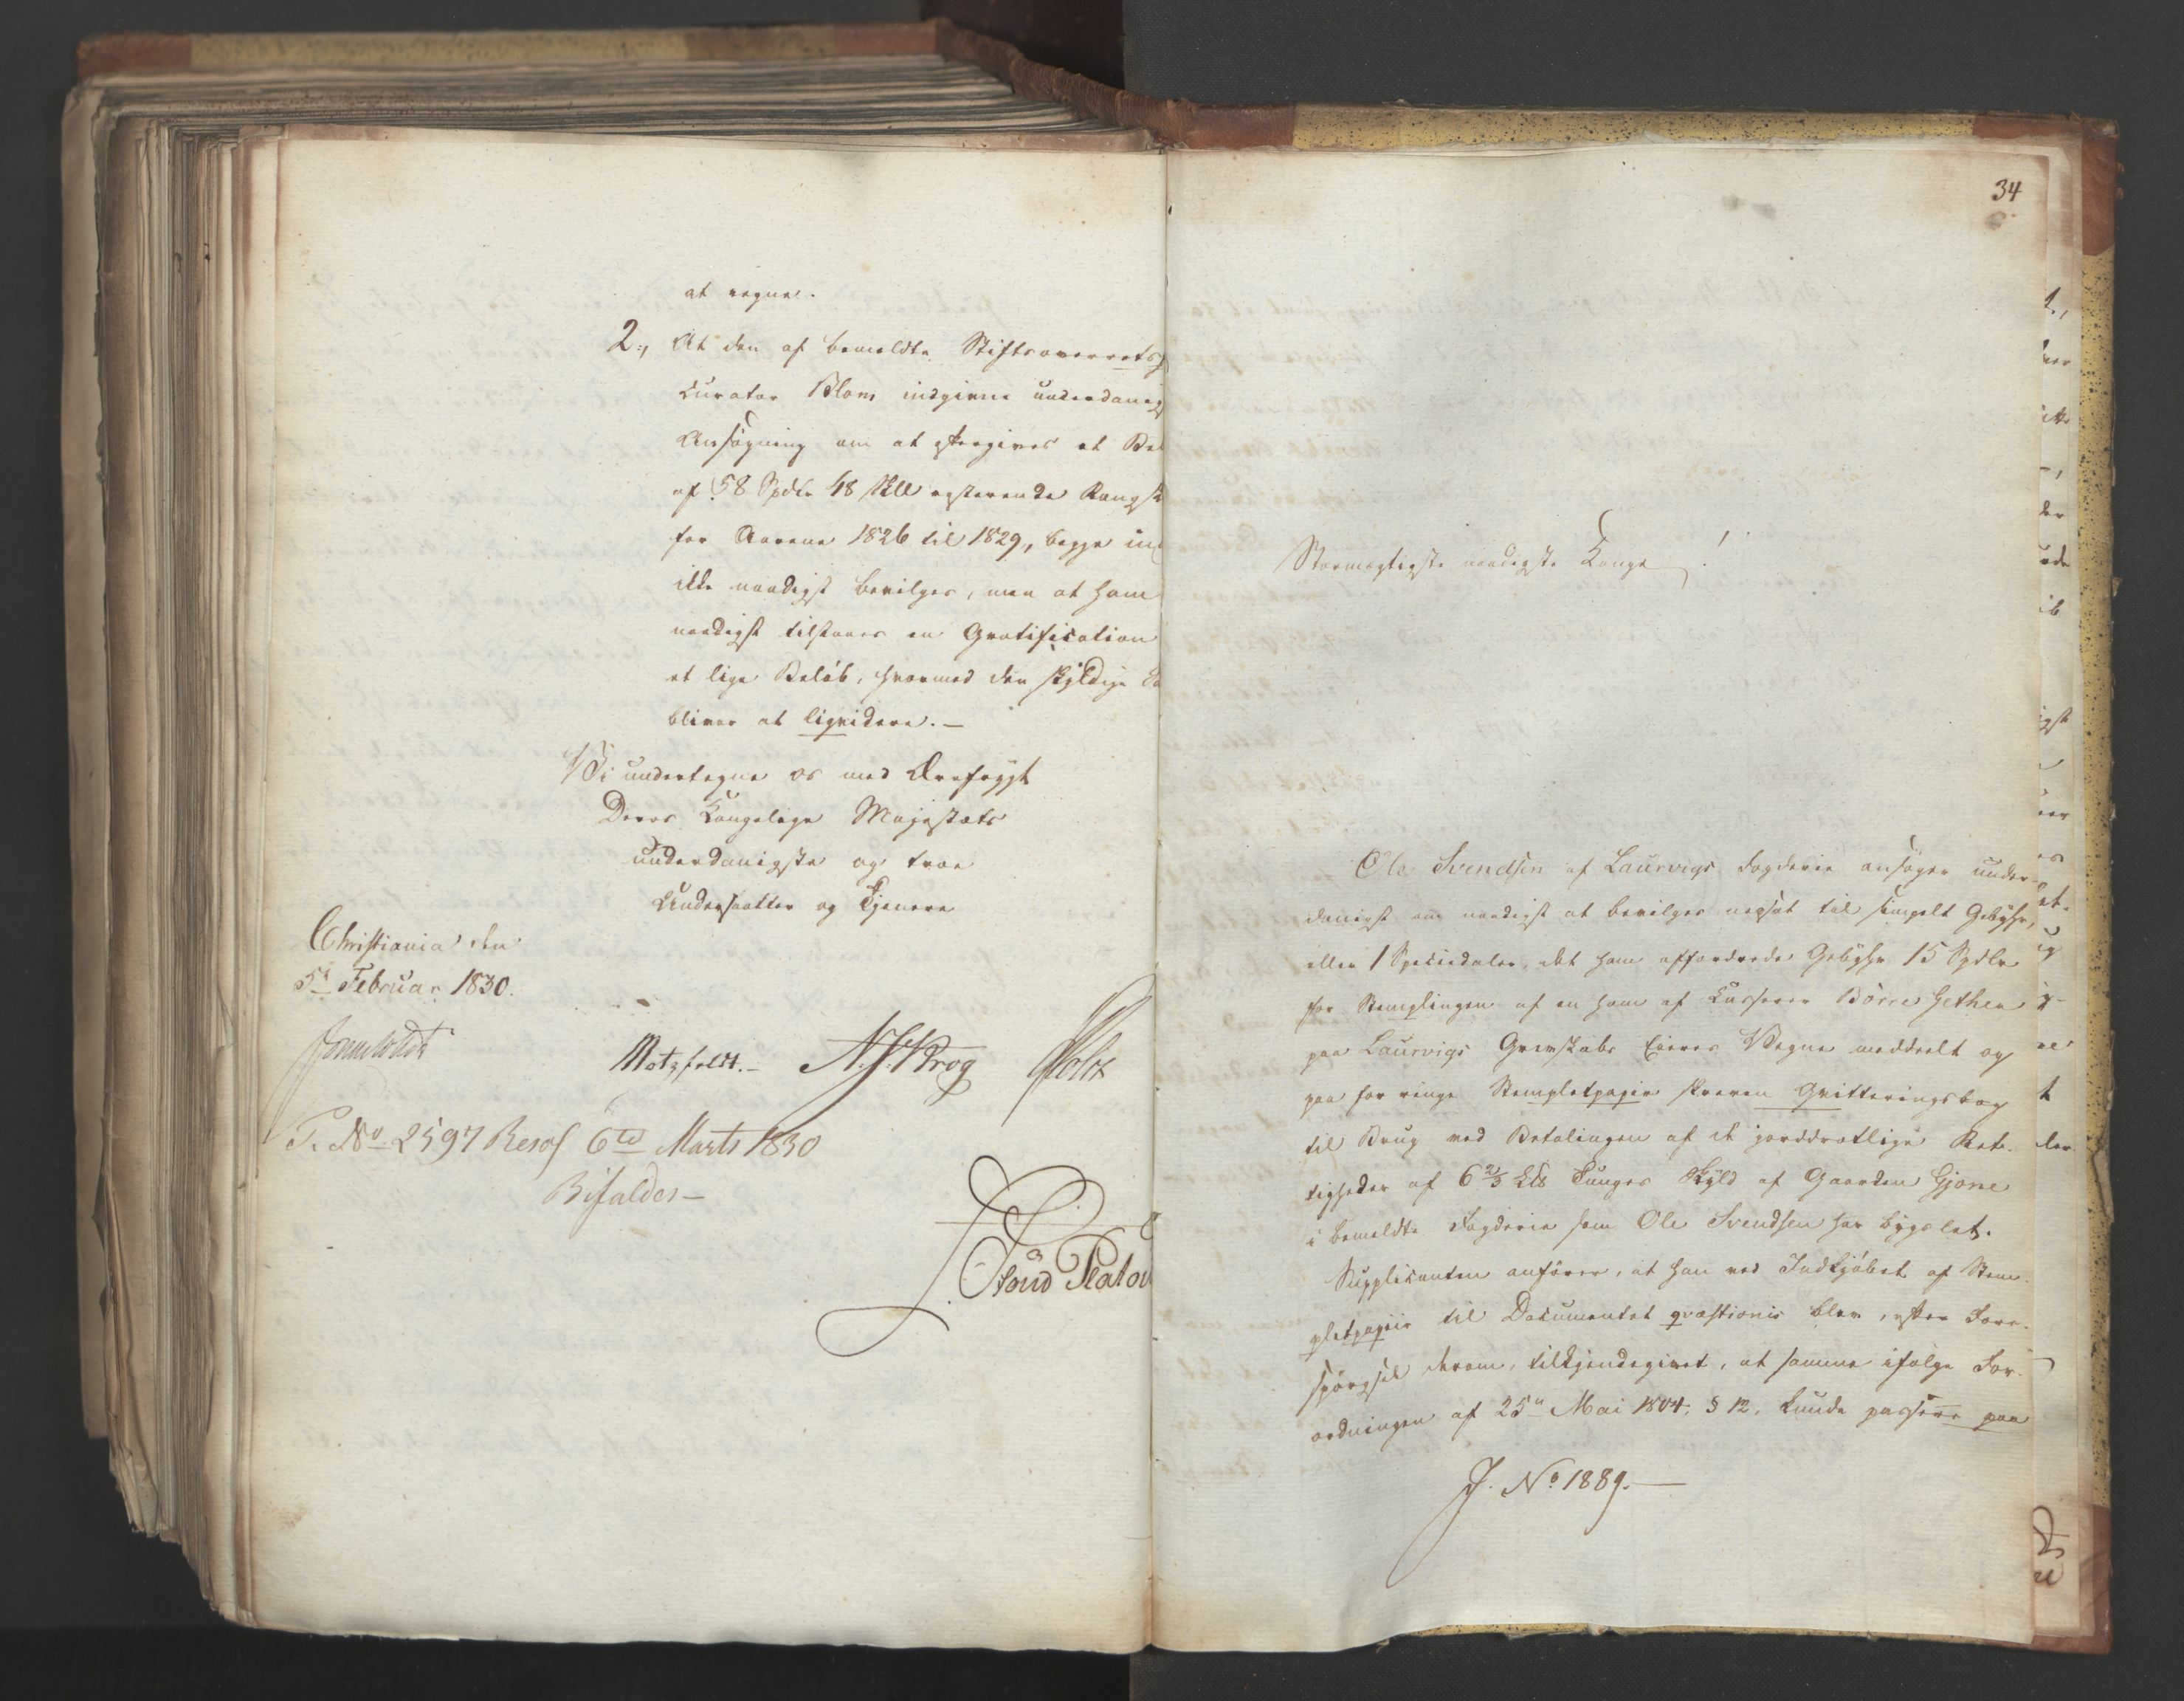 at regne.
2., At den af bemeldte Stiftsoverrets
Curator Blom indgivne underdanig
Ansøgning om at eftergives et Bel
af 58 Spdlr 48 Skll resterende Rangsk
for Aarene 1826 til 1829, begge in
ikke naadigst bevilges, men at ham
naadigst tilstaaes en Gratification
et lige Beløb, hvormed den skyldige
bliver at liqvidere. —
Vi undertegne os med Ærefrygt
Deres Kongelige Majestæts
underdanigste og troe
Undersaatter og Tjenere
Christiania den
5te Februar 1830.
Motzfeldt. — N. J. Krog Holst
P. No 2597 Resol 6te Marts 1830
Bifaldes —
34
Stormægtigste naadigste Konge!
Ole Svendsen af Laurvigs Fogderie ansøger under-
danigst om naadigst at bevilges nedsat til simpelt Gebyhr,
eller 1 Speciedaler, det ham affordrede Gebyhr 15 Spdlr
for Stemplingen af en ham af Casserer Börre Gether
paa Laurvigs Grevskabs Eieres Vegne meddeelt og
paa for ringe Stempletpapir skreven Qvitteringsbog
til Brug ved Betalingen af de jorddrotlige Ret-
tigheder af 6 2/3 Tunges Skyld af Gaarden Gjone
i bemeldte Fogderie som Ole Svendsen har bygslet.
Supplicanten anfører, at han ved Indkjøbet af Stem-
pletpapiir til Documentet qvæstionis blev, efter Fore-
spörgsel derom, tilkjendegivet, at samme ifølge For-
ordningen af 25de Mai 1804, § 12, kunde passere paa
J. No 1889. —